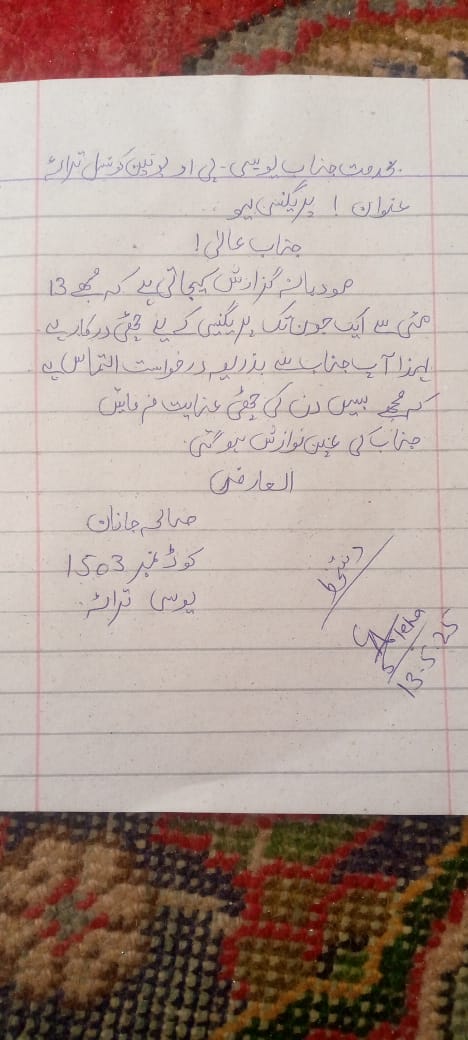 بخدمت جناب یوسی - پی او یونین کونسل ترائہ
عنوان ! پریگنسی لیو
جناب عالی !
مودبانہ گزارش کیجاتی ہے کہ مجھے 13
مئی سے ایک جون تک پریگنسی کے لیے چھٹی درکار ہے
لہذا آپ جناب سے بذریعہ درخواست التماس ہے
کہ مجھے بیس دن کی چھٹی عنایت فرمائیں
جناب کی عین نوازش ہو گئی
العارض
صالحہ جانان
کوڈ نمبر 1503
یوسی ترائہ
دستخط
13.5.25